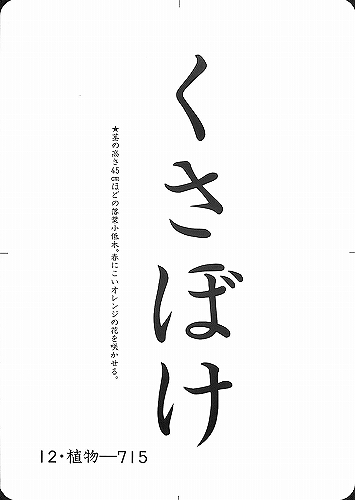 くさぼけ
★茎の高さ45cmほどの落葉小低木。春にこいオレンジの花を咲かせる。
12・植物―715